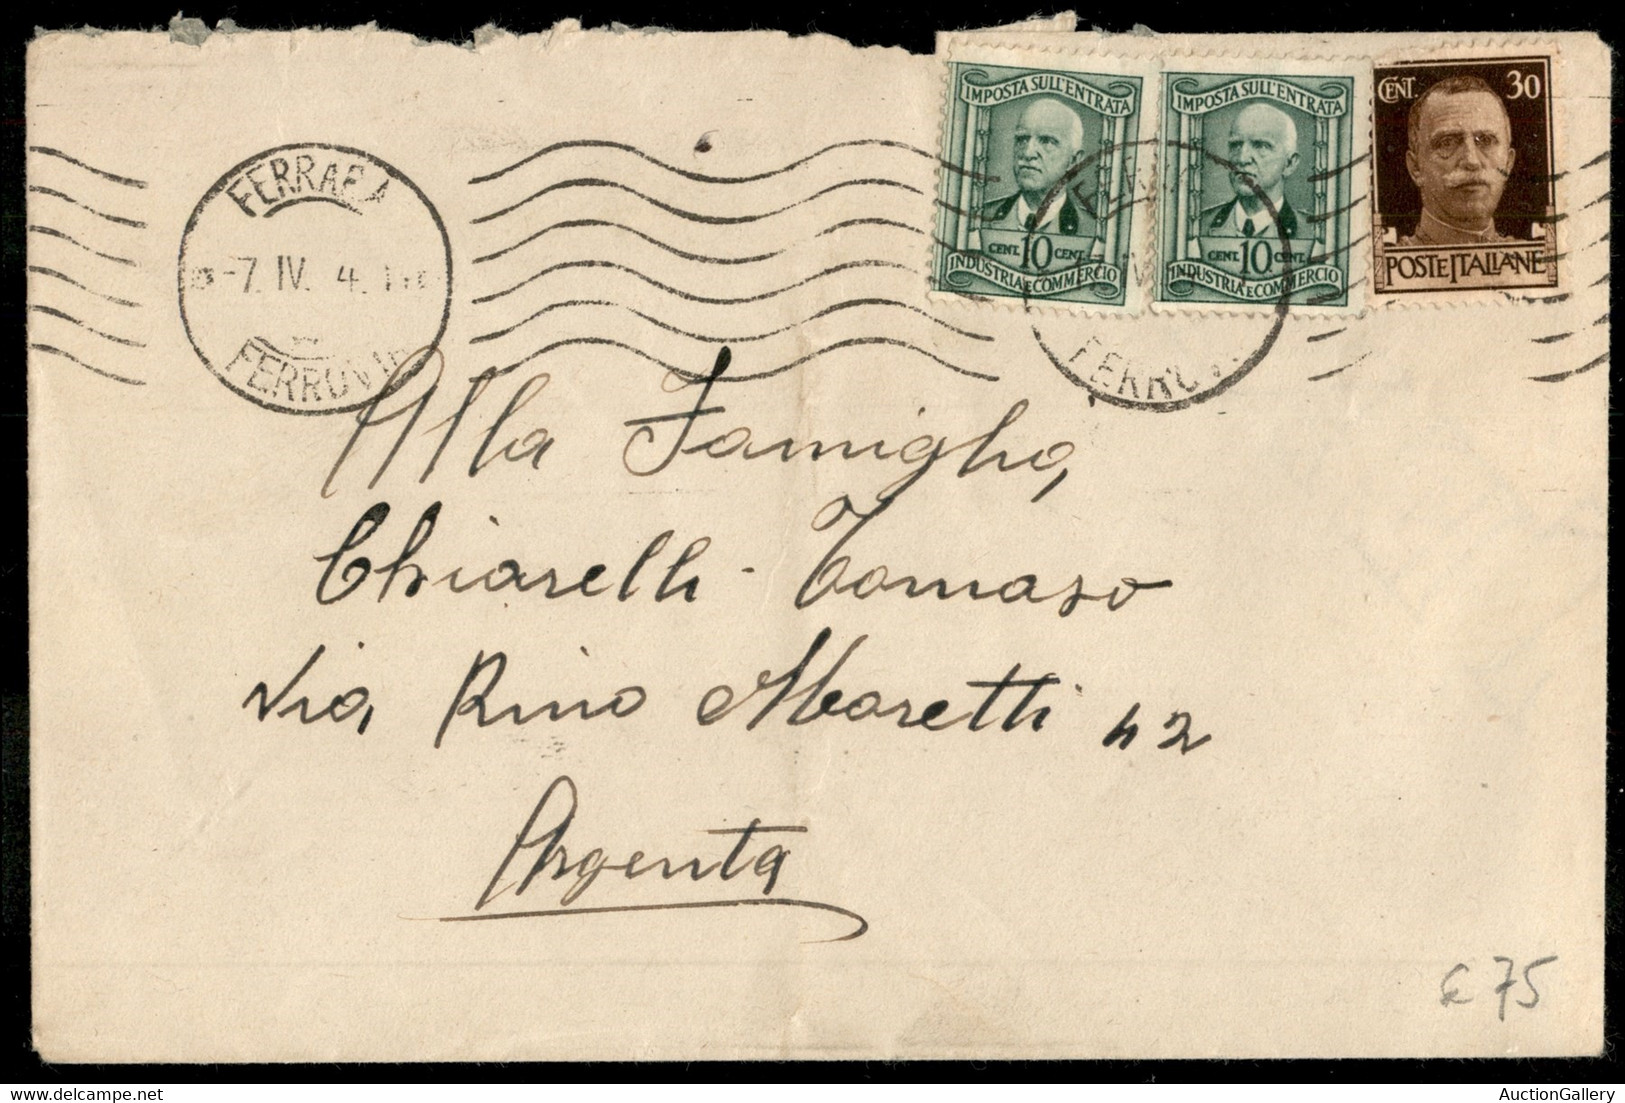 IMPOSTA SULL'ENTRATA
CENT. 10 CENT.
INDUSTRIA E COMMERCIO
IMPOSTA SULL'ENTRATA
CENT. 10 CENT.
INDUSTRIA E COMMERCIO
CENT. 30
POSTE ITALIANE
FERRARA
-7. IV. 4.
FERROVIA
FERRO
Alla Famiglia,
Chiarelli - Tomaso
Via Rino Moretti 42
Argenta
€ 75
AuctionGallery